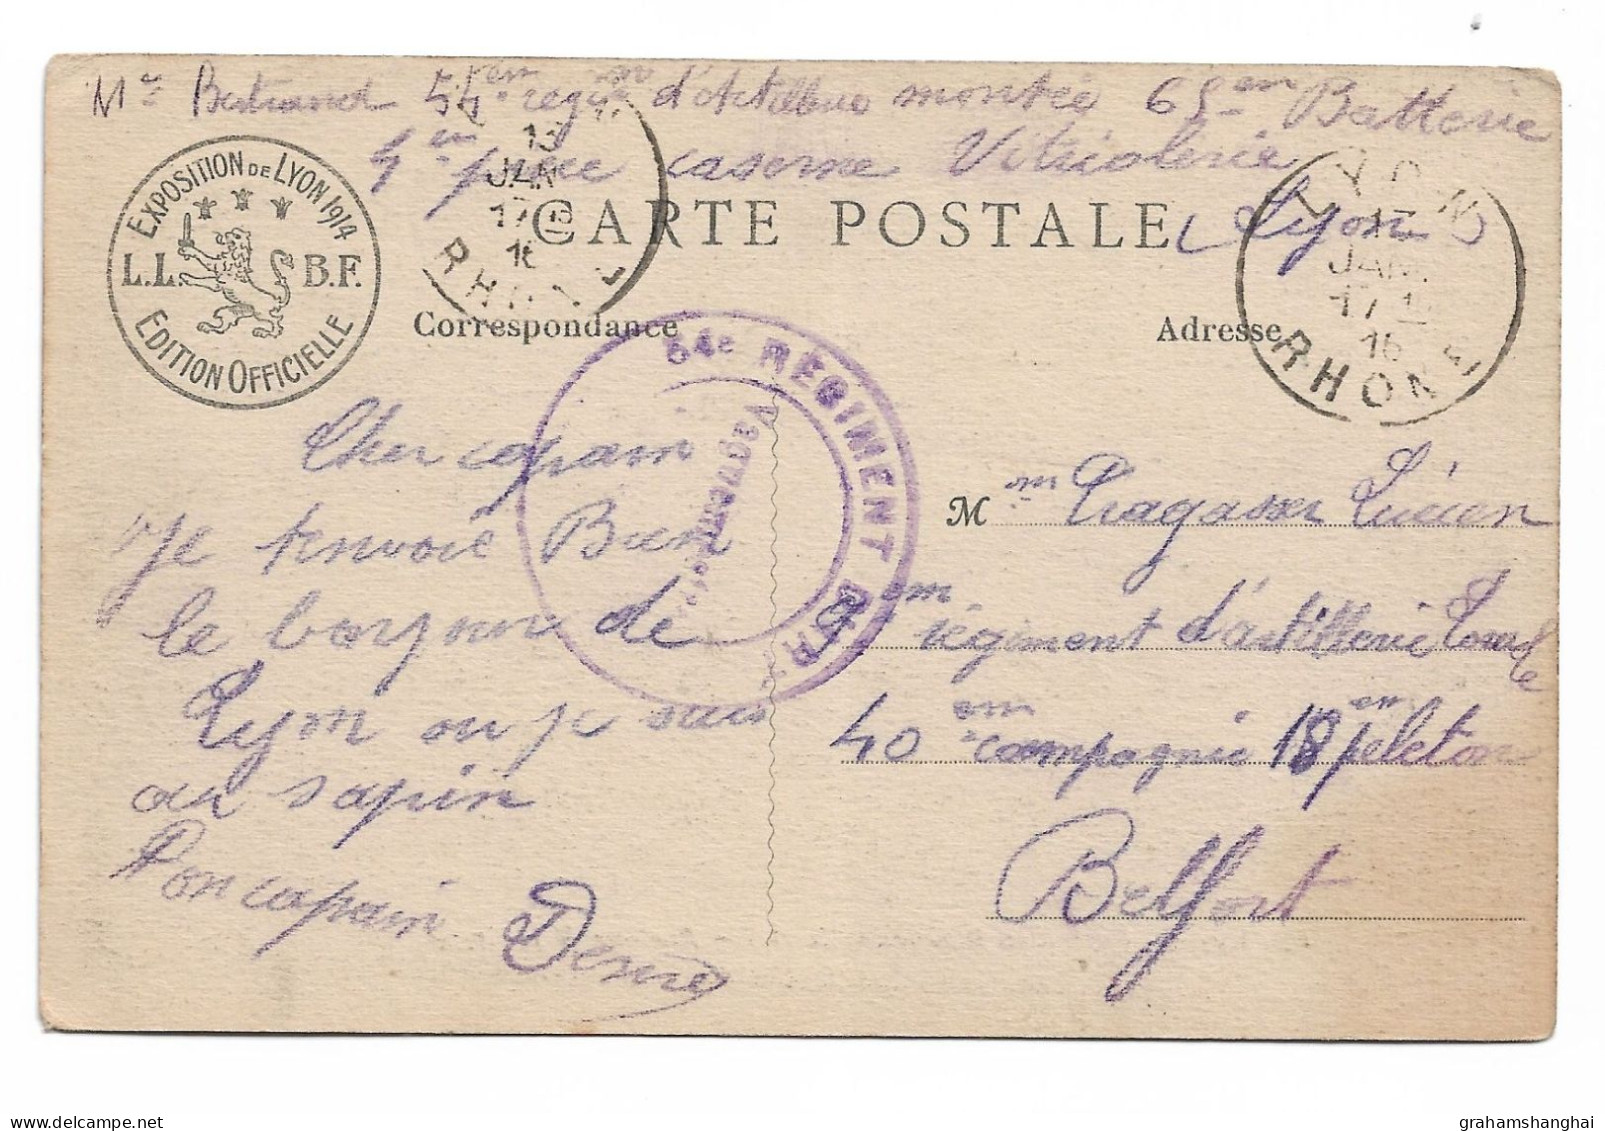 Mr Bertrand 54em regim d'Artillerie montée 65em Batterie
4em pièce caserne Vitriolerie
Lyon
EXPOSITION DE LYON 1914
L.L. B.F.
EDITION OFFICIELLE
13
JAN
17
16
RHONE
CARTE POSTALE
LYON
JAN
17
16
RHONE
Correspondance
Adresse
54e REGIMENT D'AR
Vaguemestre
Cher copain
Je tenvoie Bien
le bonjour de
Lyon ou je suis
au sapin
Ton copain
M
Lucien
9em régiment d'artillerie Lourde
40em compagnie 18em peleton
Belfort
grahamshanghai